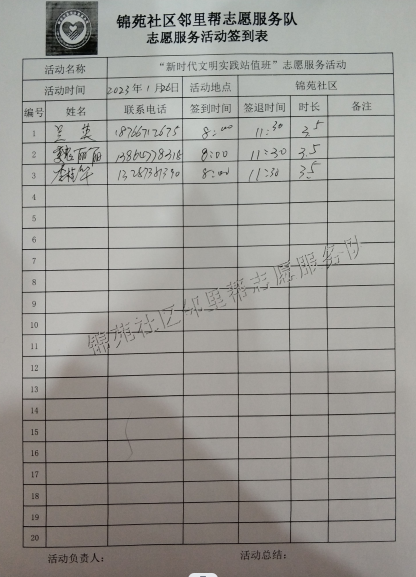 锦苑社区邻里帮志愿服务队
志愿服务活动签到表
活动名称 “新时代文明实践站值班”志愿服务活动
活动时间 2023年1月26日 活动地点 锦苑社区
编号 姓名 联系电话 签到时间 签退时间 时长 备注
1 18766712675 8:00 11:30 3.5
2 丽丽 8:00 11:30 3.5
3 8:00 11:30 3.5
4
5
6
7
8
9
10
11
12
13
14
15
16
17
18
19
20
锦苑社区邻里帮志愿服务队
活动负责人： 活动总结：